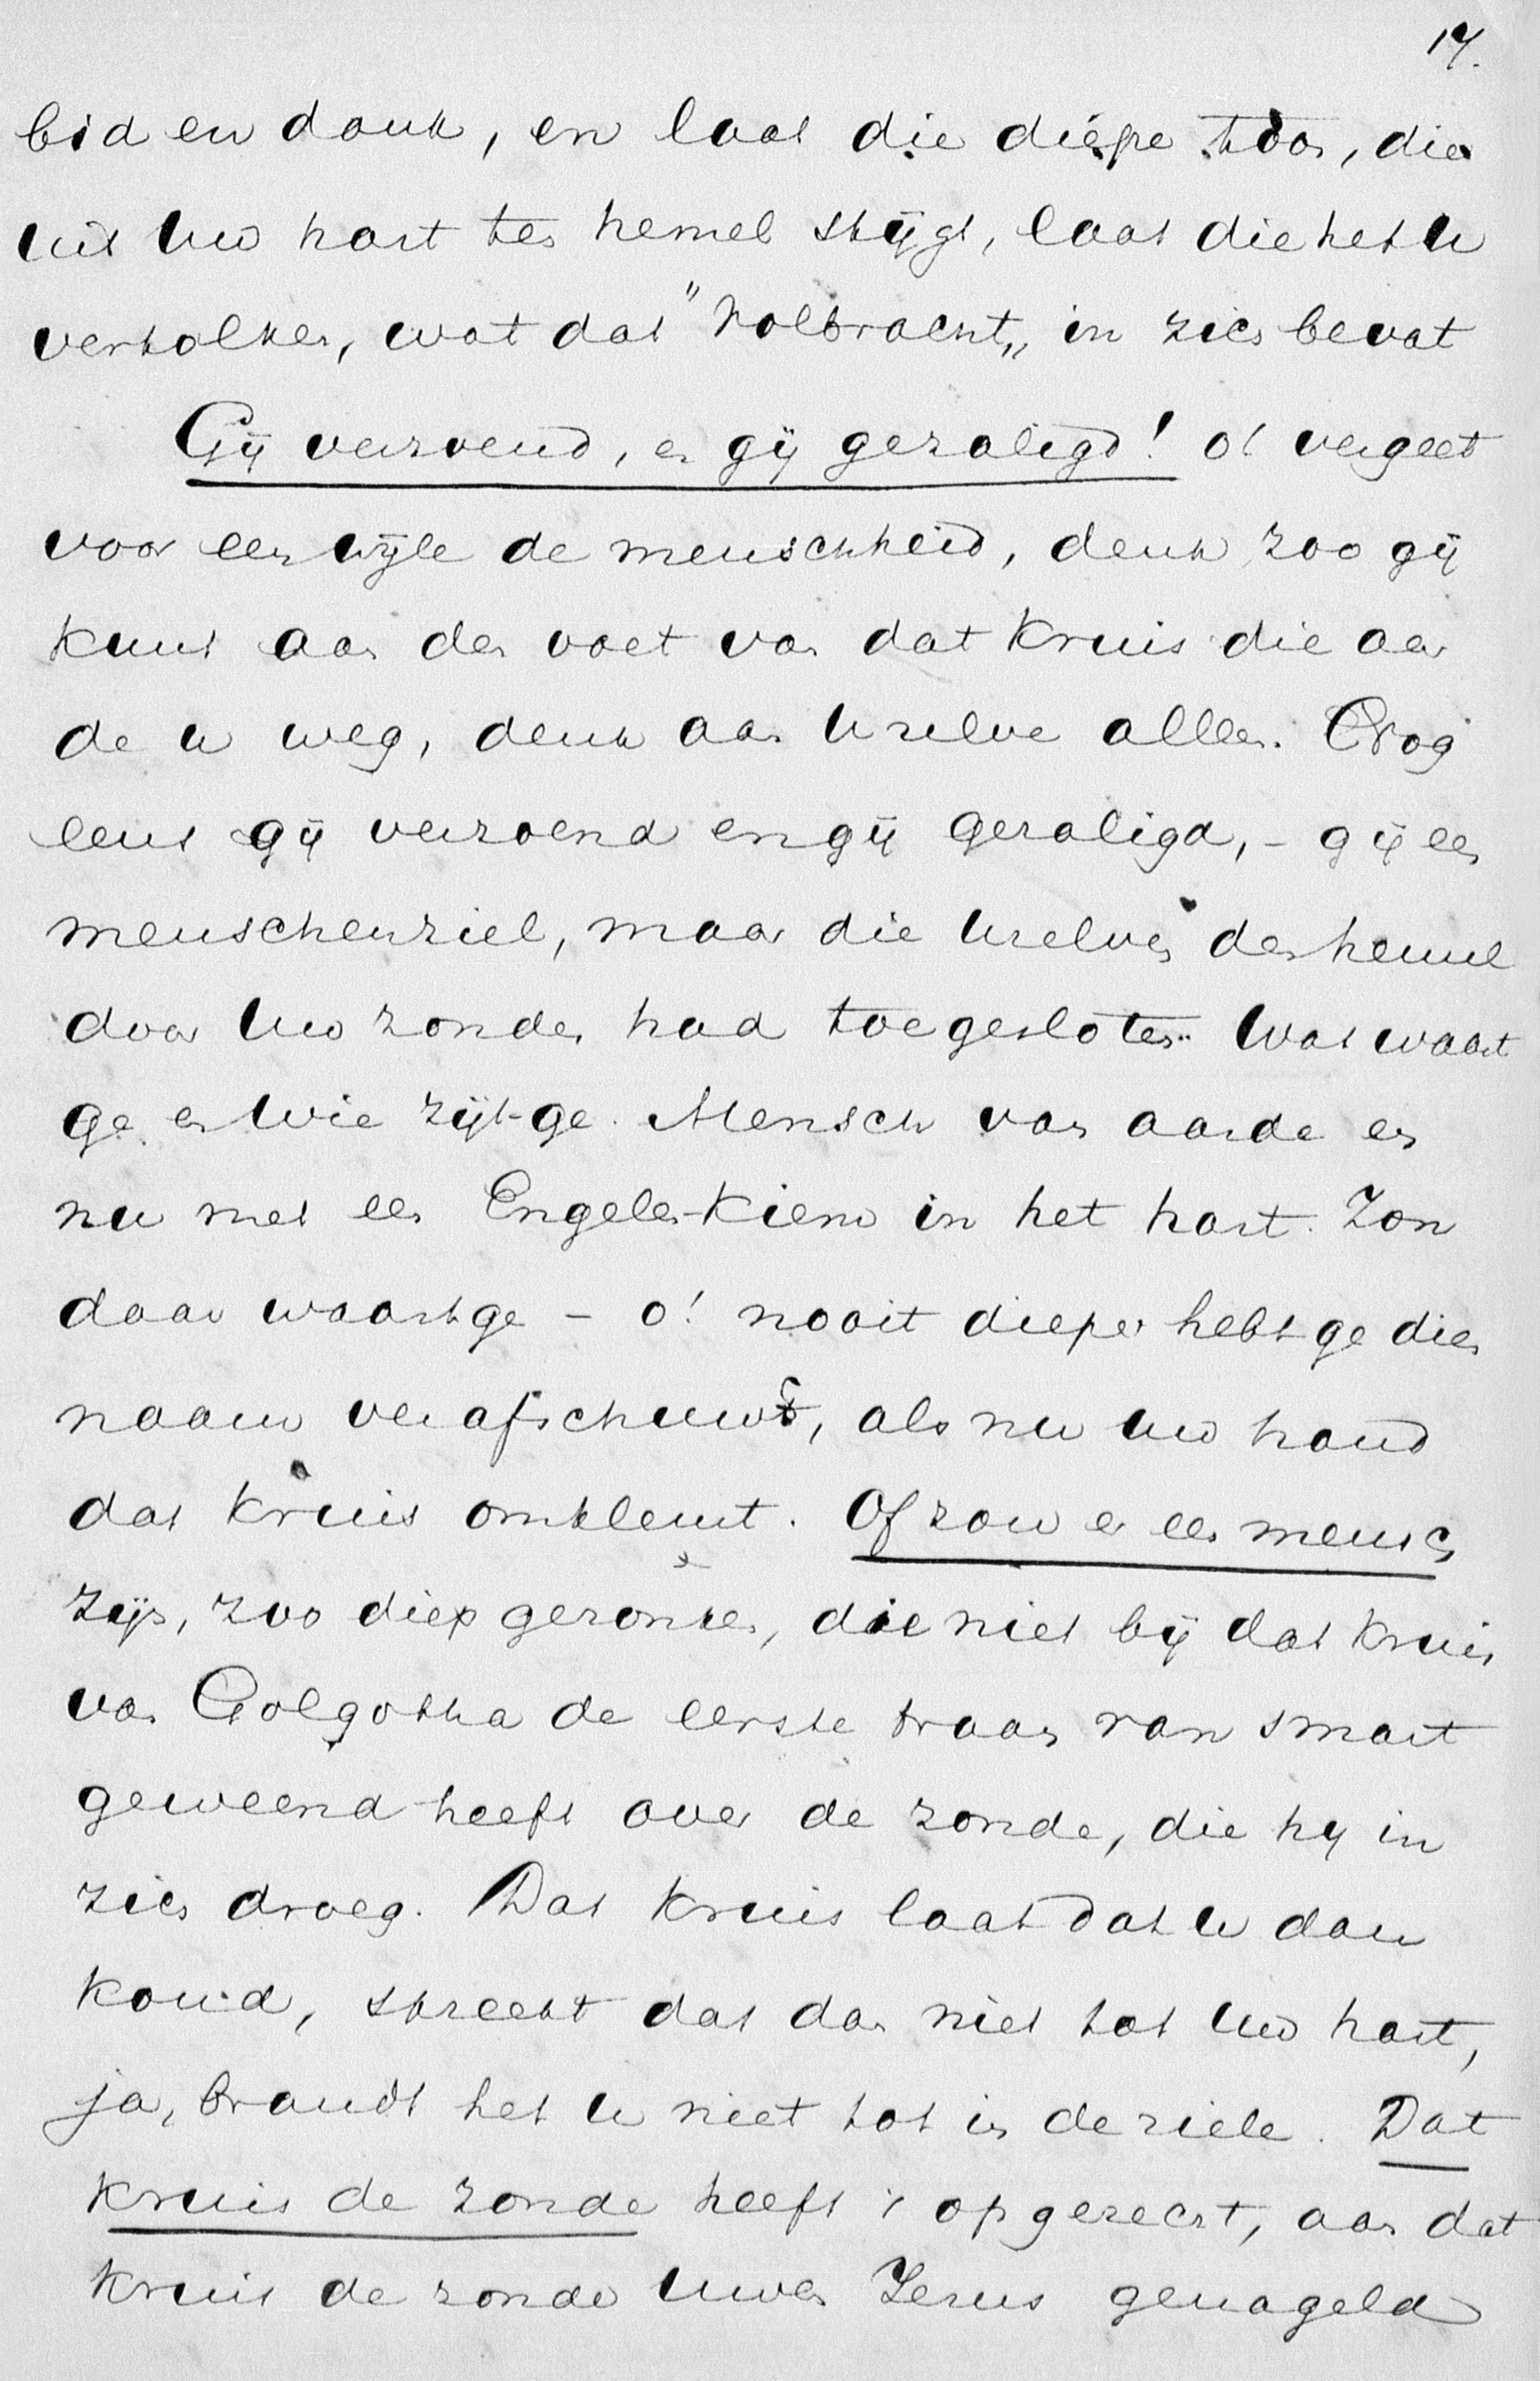 17.
bid en dank, en laat die diepe toon, die
uit Uw hart ten hemel stijgt, laat die het U
vertolken, wat dat "Volbracht„ in zich bevat
Gij verzoend, en gij gezaligd! o! vergeet
voor een wijle de menschheid, denk zoo gij
kunt aan den voet van dat Kruis die aar
de u weg, denk aan Uzelve alleen. Vrog
eens gij verzoend en gij gezaligd, - gij een
menschenziel, maar die Uzelven den hemel
door Uw zonden had toegesloten. Wat waart
ge en Wie zijt-ge. Mensch van aarde en
nu met een Engelen-Kiem in het hart. Zon
daar waart ge - o! nooit dieper hebt ge dien
naam verafschuwd, als nu uw hand
dat Kruis omklemt. Of zou er een mensch
zijn, zoo diep gezonken, die niet bij dat Kruis
van Golgotha de eerste traan van smart
geweend heeft over de zonde, die hij in
zich droeg. Dat Kruis laat dat U dan
koud, spreekt dat dan niet tot Uw hart,
ja, brandt het U niet tot in de ziele. Dat
Kruis de zonde heeft 't opgerecht, aan dat
Kruis de zonde Uwen Jezus genageld